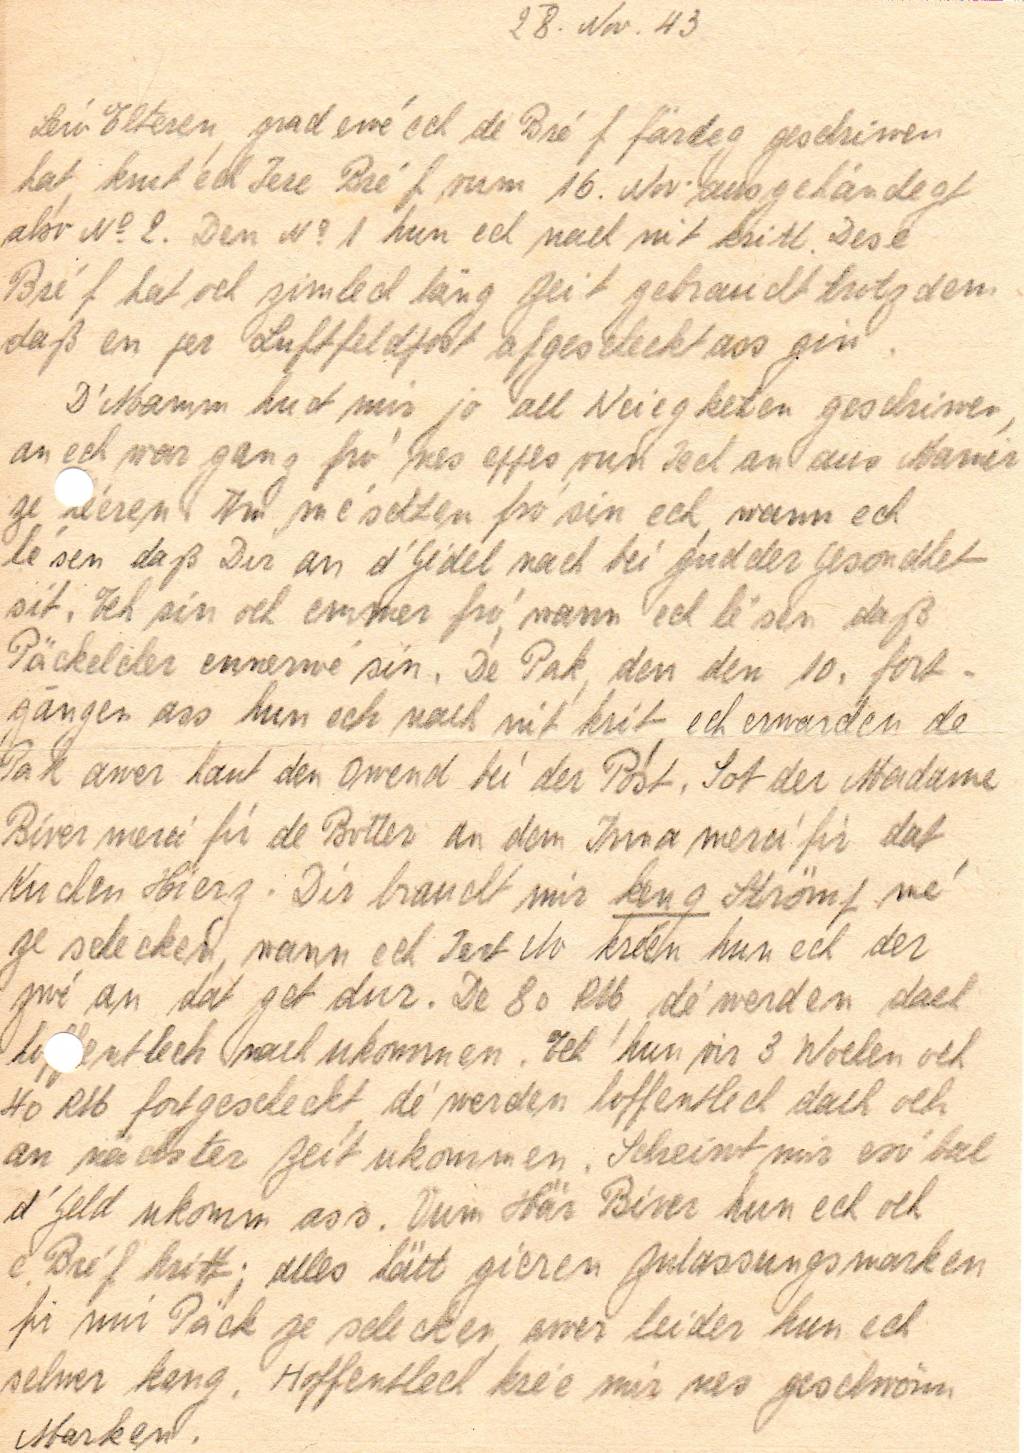 28. Nov. 43
Léiw Elteren, grad ewé ech de Bréf färdeg geschriwen
hat, krut ech Iere Bréf vum 16. Nov. ausgehändegt
also No 2. Den No 1 hun ech nach nit kritt. Dese
Bréf hat och zimlech läng Zeit gebraucht trotzdem
daß en per Luftfeldpost afgescheckt ass gin.
D'Mamm huet mir jo all Neiegkeeten geschriwen,
an ech war ganz fro' nes eppes vun Iech an aus Mamer
ze héieren. Am méschten fro' sin ech wann ech
lé'sen daß Dir an d'Gidel nach bei gudder Gesondhet
sit. Ech sin och emmer fro', wann ech lé'sen daß
Päckelcher ennerwé sin. De Pak, den den 10. fort-
gängen ass hun ech nach nit krit, ech erwarden de
Pak awer haut den Owend bei der Póst. Sot der Madame
Biver merci fir de Botter an dem Irma merci fir dat
Kuchen Hierz. Dir braucht mir keng Strömp mé
ze schecken, wann ech Iert No kréen hun ech der
zwé an dat get dur. De 80 RM dé werden dach
hoffentlech nach ukommen. Ech hun vir 3 Wochen och
40 RM fortgescheckt, dé werden hoffentlech dach och
an nächster Zeit ukommen. Scheiwt mir esó bal
d'Geld ukomm ass. Vum Här Biver hun ech och
e Bréf kritt; alles hätt gieren Zulassungsmarken
fir mir Päck ze schecken, awer leider hun ech
selwer keng. Hoffentlech krée mir nes geschwönn
Marken.